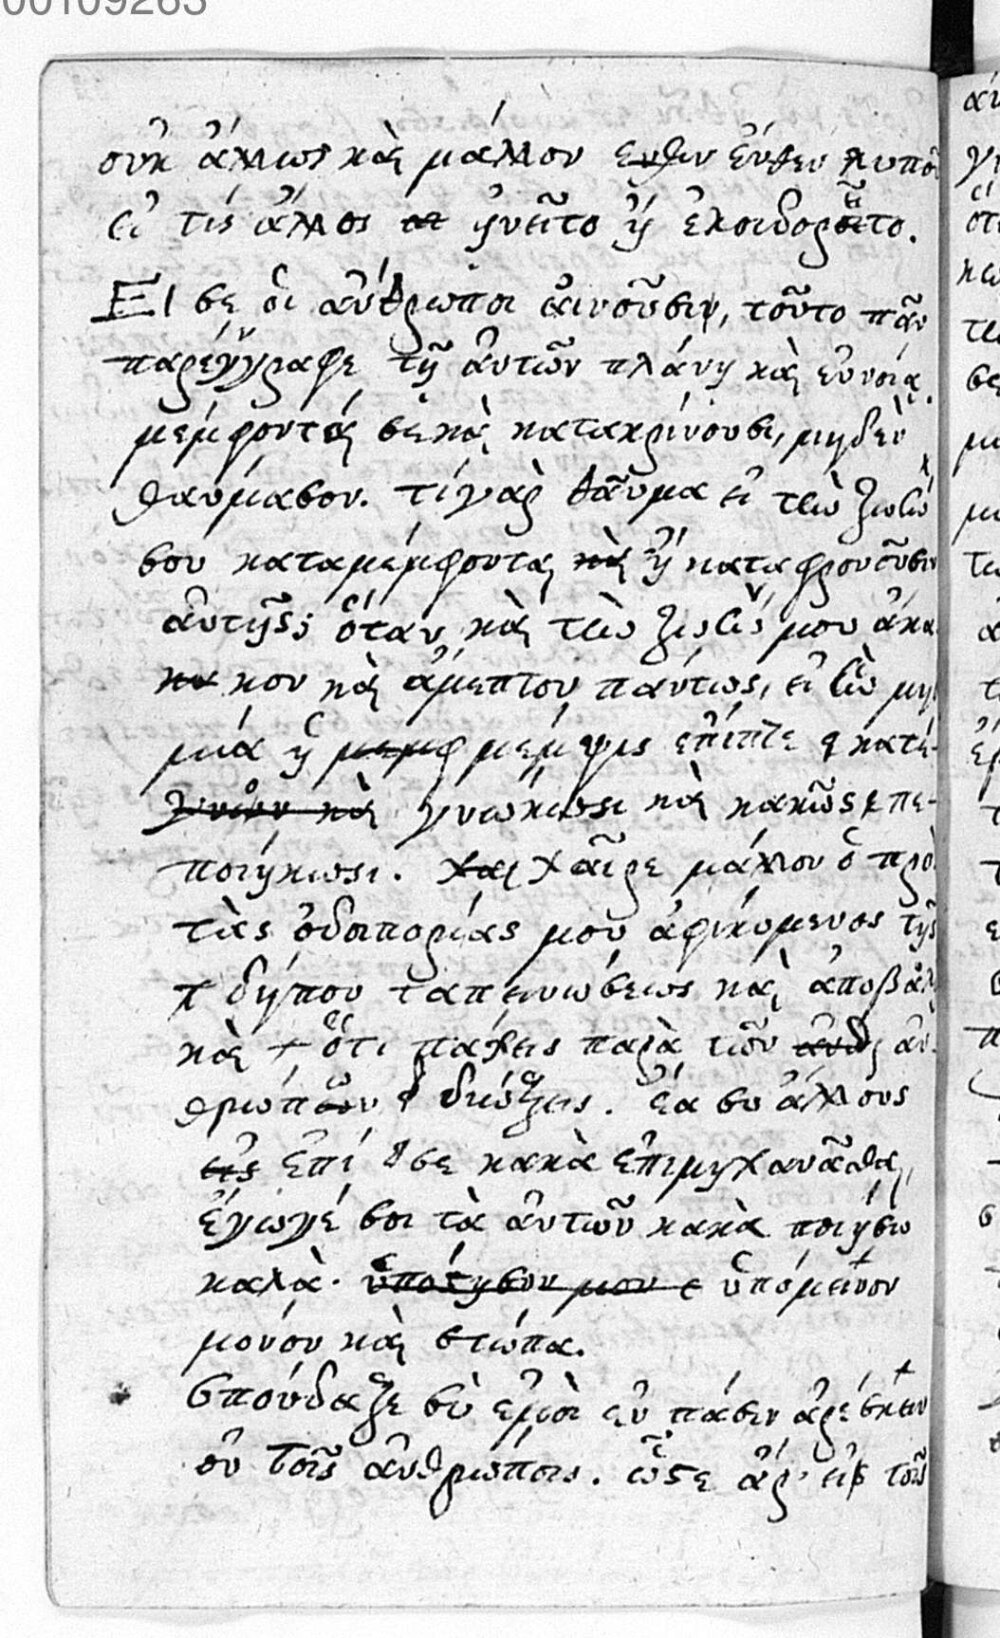 00109263
οὐκ ἄλλως καὶ μάλλον ἔνθεν λυποῦ
εἰ τὶς ἄλλος ἠνεῖτο ἢ ἐλοιδορεῖτο.
Εἰ σε ὁι ἄνθρωποι ἀινοῦσιν, τοῦτο πᾶν
παρέγγραφε τῇ ἀυτῶν πλάνῃ καὶ εὐνοίᾳ.
μέμφονταί σε καὶ κατακρίνουσι, μηδὲν
θαύμασον. τί γὰρ θᾶυμα εἰ τὴν ζωὴν
σου καταμέμφονται καὶ ἢ καταφρονοῦσιν
ἀυτῆς; ὅταν καὶ τὴν ζωὴν μου ἄκα
κον καὶ ἄμεπτον πάντως, εἰ ᾧ μη
μία ἡ μεμφ μέμψις ἐπίπτε κατέ-
γνωκωσι καὶ κακῶς πε-
ποιήκωσι. Χαι χᾶιρε μάλλον ὁ πρὸ
τὰς ὁδοιπορίας μου ἀφικόμενος τῆς
δήπου ταπεινώσεως καὶ
καὶ ὅτι πάθεις παρὰ τῶν ἀν-
θρώπων διώξεις. ἔα σὺ ἄλλους
εἰς ἐπί σε κακὰ ἐπιμηχανᾶσθαι,
ἔγωγέ σοι τὰ ἀυτῶν κακὰ ποιήσω
καλὰ. ὑπόμεινον
μόνον καὶ σιώπα.
Σπούδαζε σὺ ἐμοὶ ἐν πάσιν ἀρέσκειν
οὐ τοῖς ἀνθρώποις. ὥστε ἄρ' εἰς τοῖς